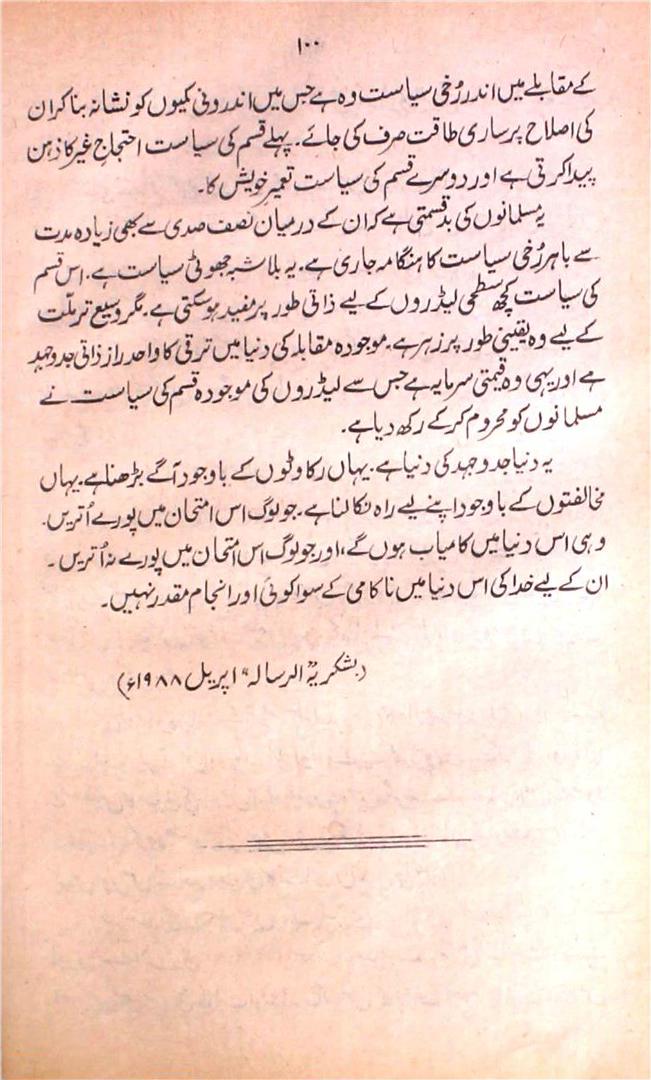 ۱۰۰
کے مقابلے میں اندر رُخی سیاست وہ ہے جس میں اندرونی کمیوں کو نشانہ بنا کر ان
کی اصلاح پر ساری طاقت صرف کی جائے۔ پہلے قسم کی سیاست احتجاجِ غیر کا ذہن
پیدا کرتی ہے اور دوسرے قسم کی سیاست تعمیر خویش کا۔
یہ مسلمانوں کی بدقسمتی ہے کہ ان کے درمیان نصف صدی سے بھی زیادہ مدت
سے باہر رُخی سیاست کا ہنگامہ جاری ہے۔ یہ بلاشبہ جھوٹی سیاست ہے۔ اس قسم
کی سیاست کچھ سطحی لیڈروں کے لیے ذاتی طور پر مفید ہوسکتی ہے۔ مگر وسیع تر ملّت
کے لیے وہ یقینی طور پر زہر ہے۔ موجودہ مقابلہ کی دنیا میں ترقی کا واحد راز ذاتی جدوجہد
ہے اور یہی وہ قیمتی سرمایہ ہے جس سے لیڈروں کی موجودہ قسم کی سیاست نے
مسلمانوں کو محروم کرکے رکھ دیا ہے۔
یہ دنیا جدوجہد کی دنیا ہے۔ یہاں رکاوٹوں کے باوجود آگے بڑھنا ہے۔ یہاں
مخالفتوں کے باوجود اپنے لیے راہ نکالنا ہے۔ جو لوگ اس امتحان میں پورے اُتریں۔
وہی اس دنیا میں کامیاب ہوں گے، اور جو لوگ اس امتحان میں پورے نہ اُتریں۔
ان کے لیے خدا کی اس دنیا میں ناکامی کے سوا کوئی اور انجام مقدر نہیں۔
(بشکریہ "الرسالہ" اپریل ۱۹۸۸ء)